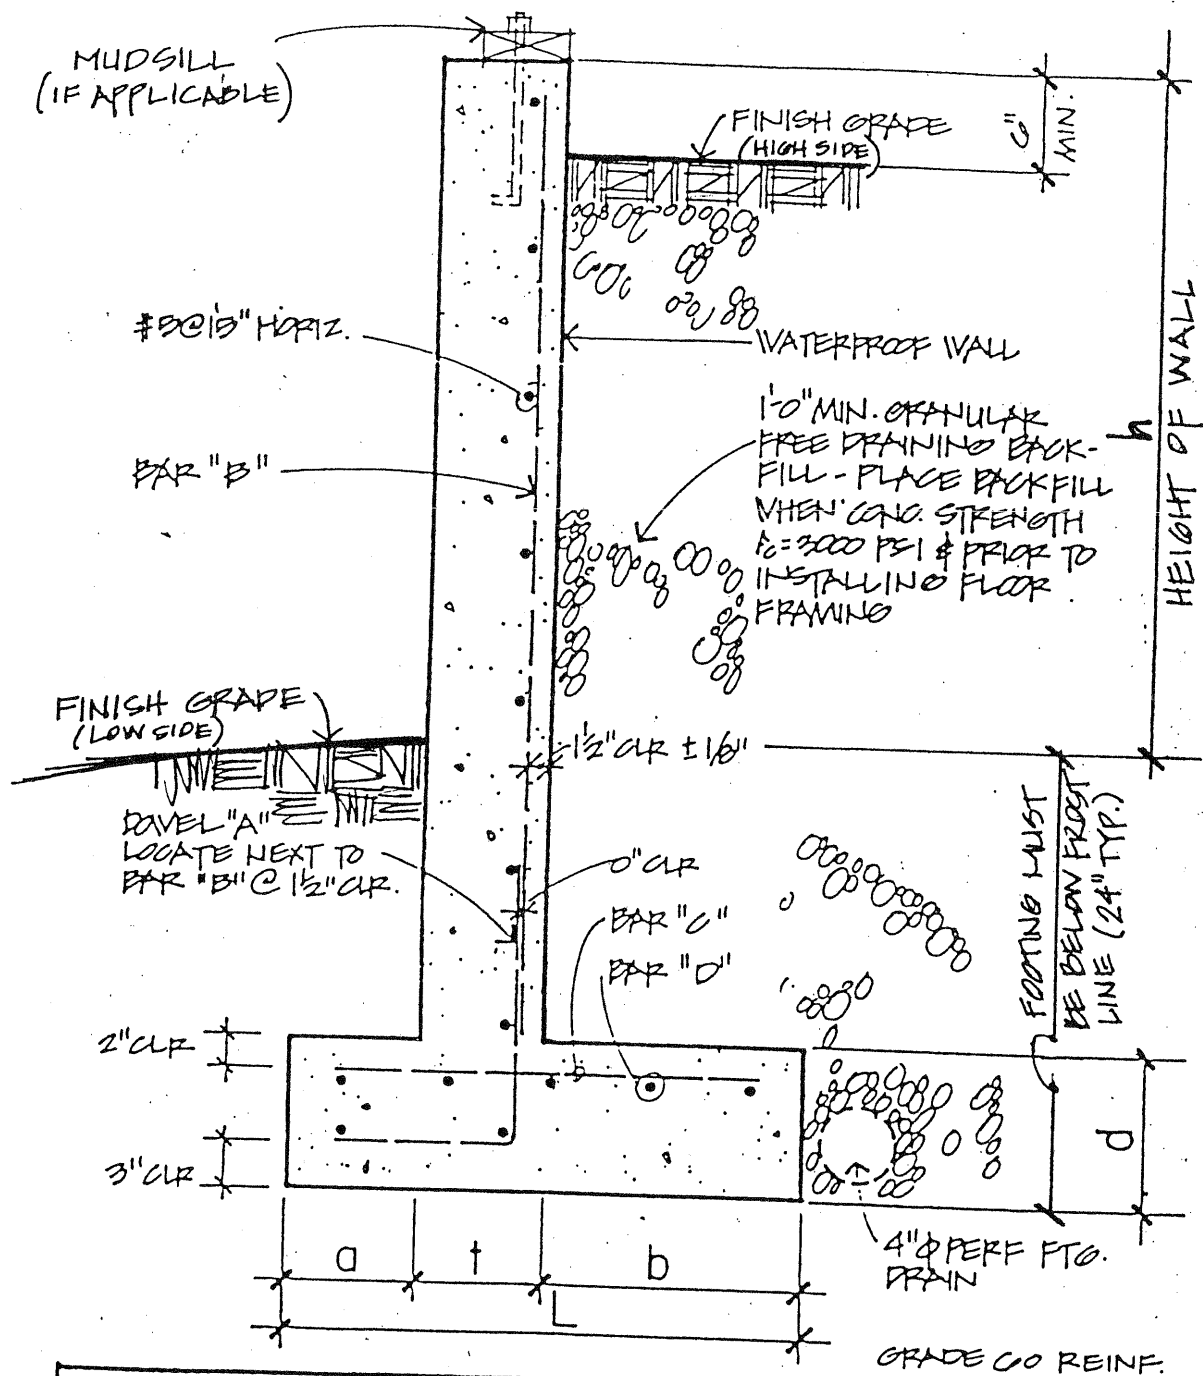 MUDSILL
(IF APPLICABLE)
FINISH GRADE
(HIGH SIDE)
6"
MIN.
#5@15" HORIZ.
WATERPROOF WALL
1'-0" MIN. GRANULAR
FREE DRAINING BACK-
FILL - PLACE BACKFILL
WHEN CONC. STRENGTH
fc=3000 PSI & PRIOR TO
INSTALLING FLOOR
FRAMING
BAR "B"
h
HEIGHT OF WALL
FINISH GRADE
(LOW SIDE)
1½" CLR ± 1/8"
DOWEL "A"
LOCATE NEXT TO
BAR "B" @ 1½" CLR.
0" CLR
BAR "C"
BAR "D"
FOOTING MUST
BE BELOW FROST
LINE (24" TYP.)
2" CLR
3" CLR
d
a
t
b
L
4"⌀ PERF FTG.
DRAIN
GRADE 60 REINF.